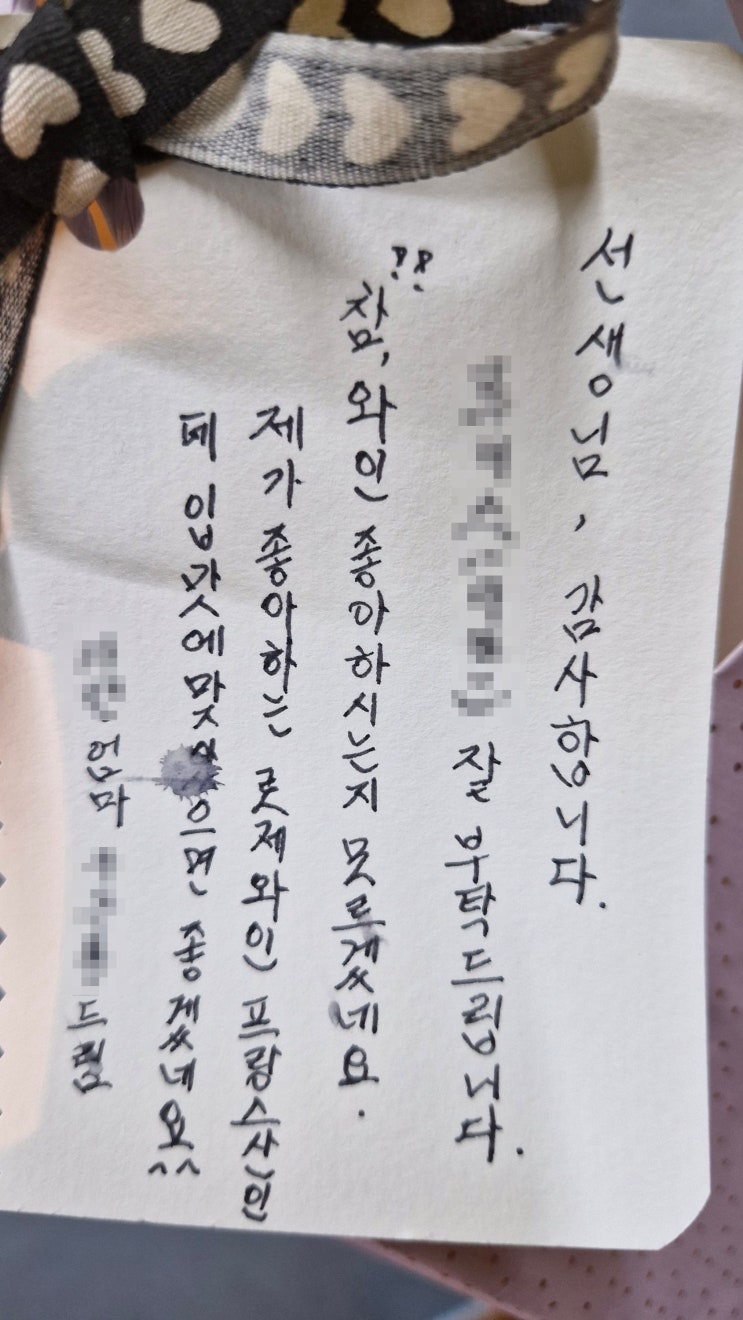 선생님, 감사합니다.
잘 부탁드립니다.
참, 와인 좋아하시는지 모르겠네요.
제가 좋아하는 로제와인 프랑스산인
데 입맛에 좋겠네요^^
엄마 드림